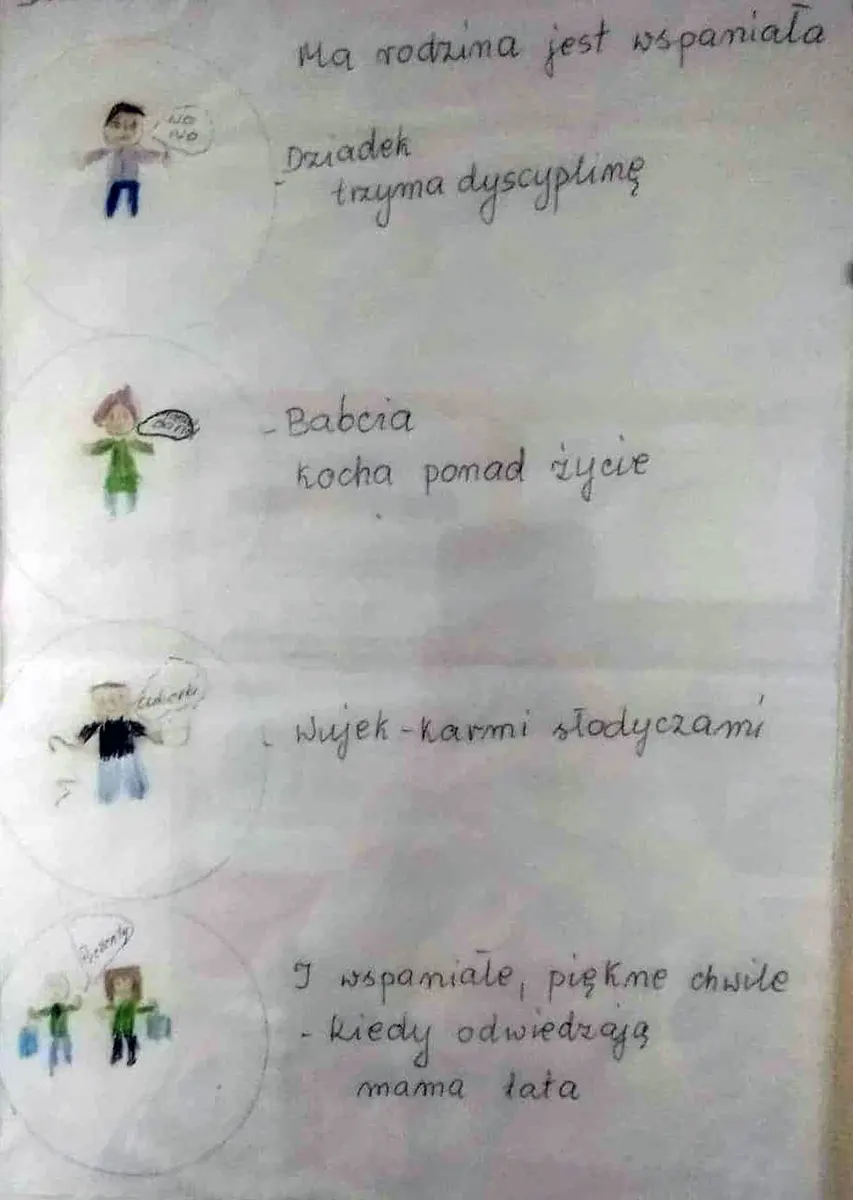 Ma rodzina jest wspaniała
NO
NO
- Dziadek
trzyma dyscyplinę
- Babcia
kocha ponad życie
Cukierki
- Wujek - karmi słodyczami
Prezenty
I wspaniałe, piękne chwile
- kiedy odwiedzają
mama tata